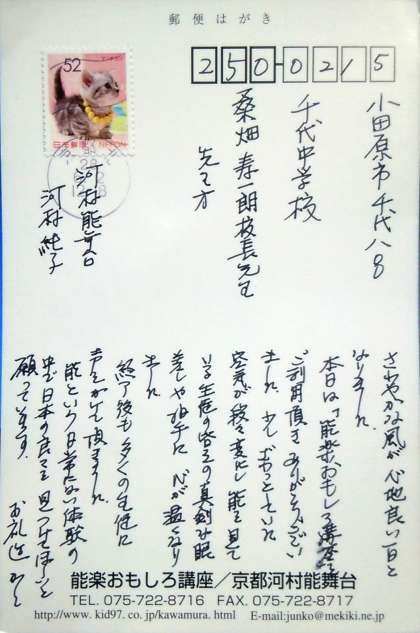 郵便はがき
52
日本郵便 NIPPON
250-0215
小田原市千代八〇
千代中学校
桑畑寿一朗校長先生
河村能舞台
河村純子
さわやかな風が心地良い一日と
なりました
本日は「能楽おもしろ講座」
ご利用頂きありがとうござい
ました 少しざわっとしていた
空気が段々変化し能を見て
いる生徒の皆さの真剣な眼
差しや拍手に 心が温くなり
ました
終了後も多くの生徒に
声をかけて頂きました
能という日常にない体験の
中で日本の良さを見つけてほしいと
願っています。
お礼迄 かしこ
能楽おもしろ講座／京都河村能舞台
TEL. 075-722-8716 FAX. 075-722-8717
http://www.kid97.co.jp/kawamura.html E-mail:junko@mekiki.ne.jp